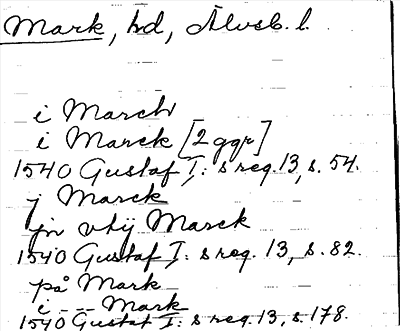 Mark, hd, Älvsb. l.
i March
i Marck [2 ggr]
1540 Gustaf I: s reg. 13, s. 54.
j Marck
jn vthj Marck
1540 Gustaf I: s reg. 13, s. 82.
på Mark
i - - - Mark
1540 Gustaf I: s reg. 13, s. 178.